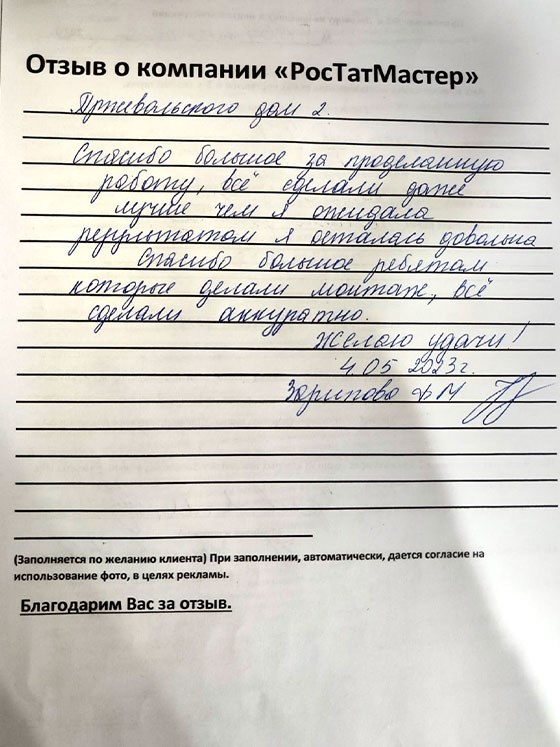 Отзыв о компании «РосТатМастер»
Пржевальского дом 2.
Спасибо большое за проделанную
работу, всё сделали даже
лучше чем я ожидала
результатом я осталась довольна
Спасибо большое ребятам
которые делали монтаж, всё
сделали аккуратно.
Желаю удачи!
4 05 2023г.
Зарипова Ф М
(Заполняется по желанию клиента) При заполнении, автоматически, дается согласие на
использование фото, в целях рекламы.
Благодарим Вас за отзыв.